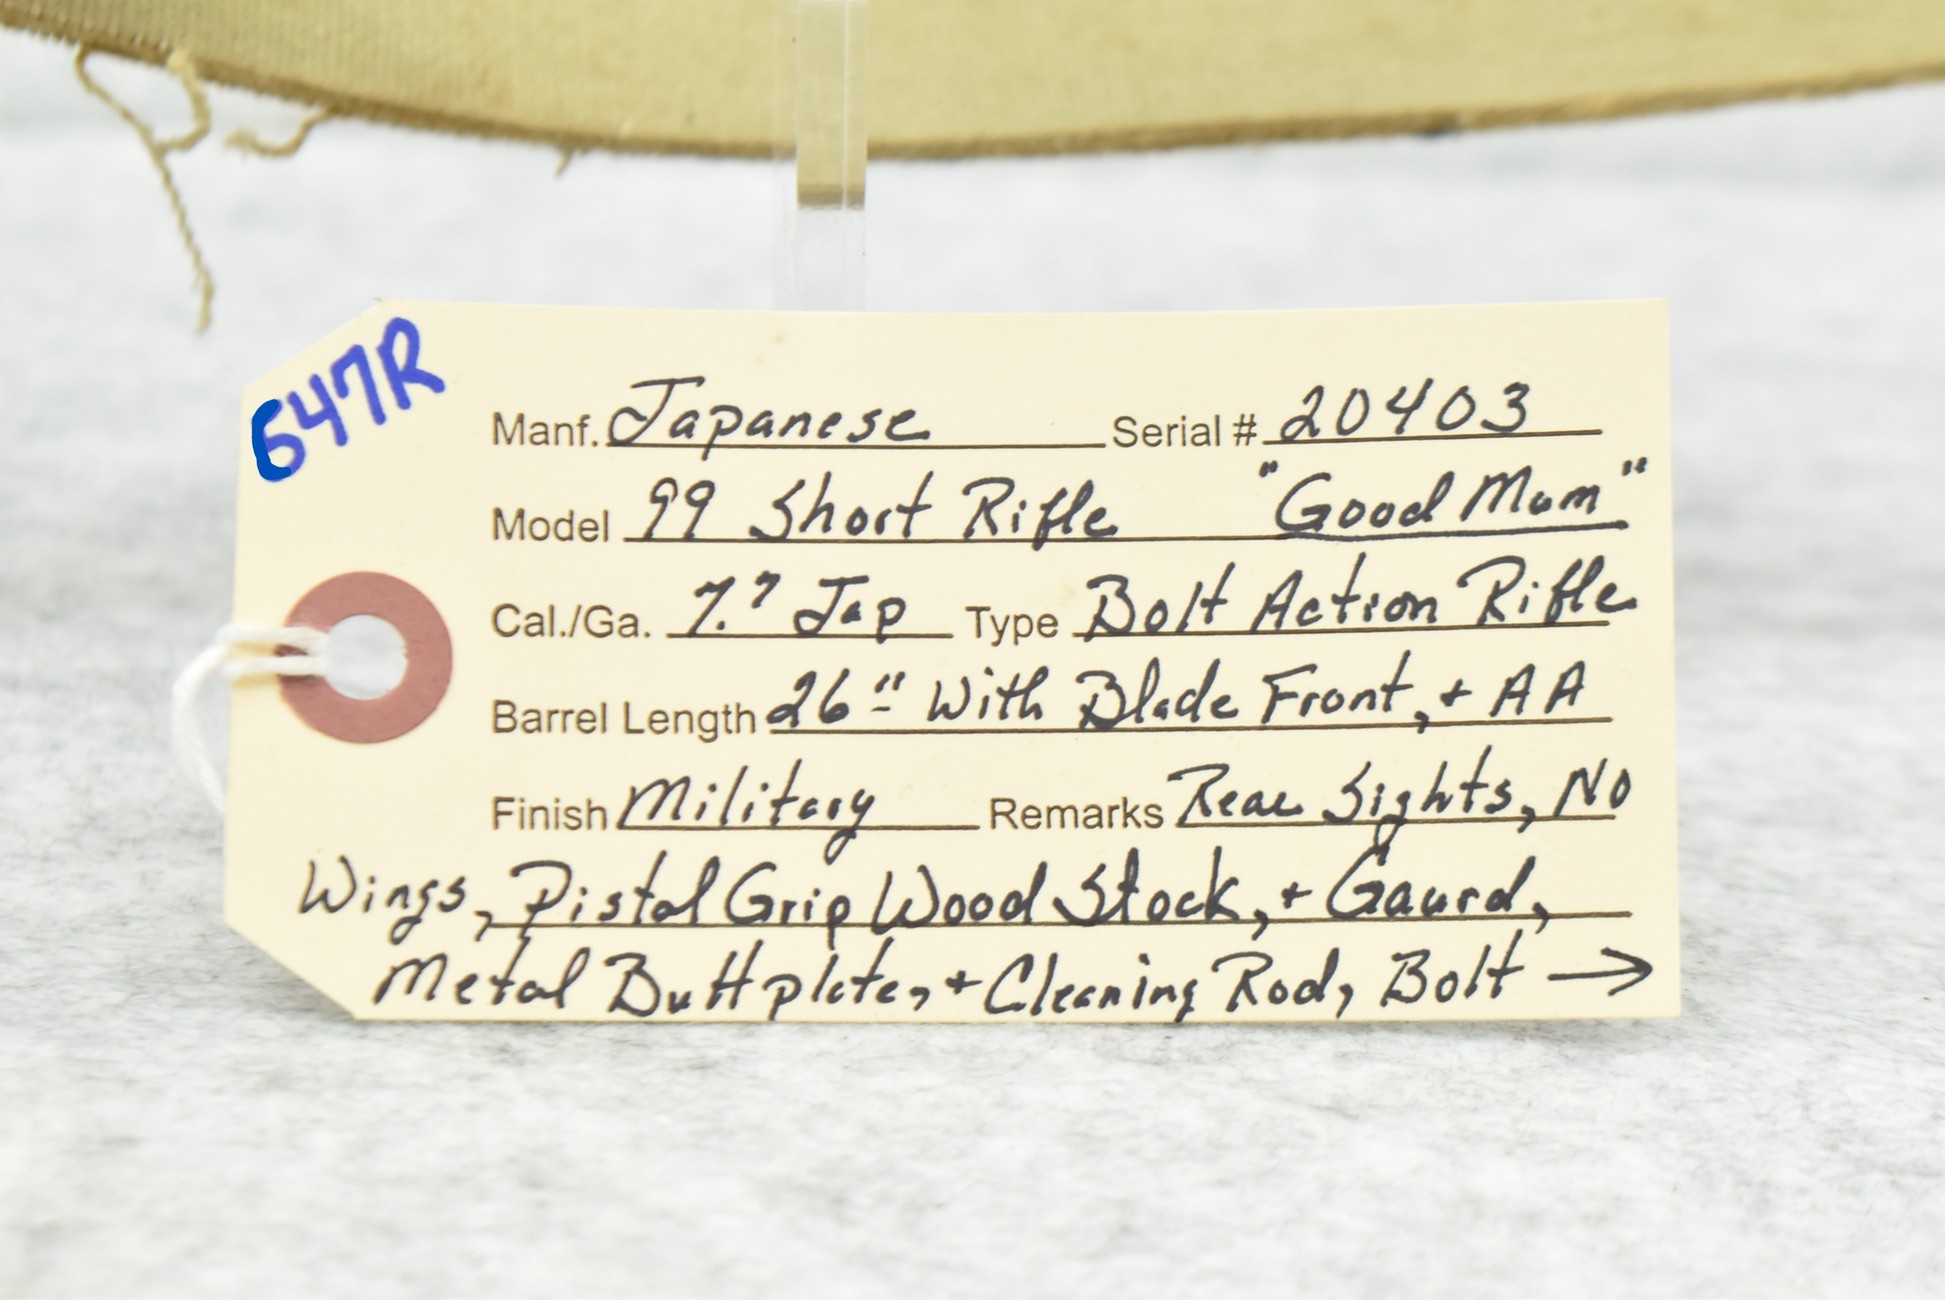 647R
Manf. Japanese Serial # 20403
Model 99 Short Rifle "Good Mum"
Cal./Ga. 7.7 Jap Type Bolt Action Rifle
Barrel Length 26" With Blade Front, + AA
Finish Military Remarks Rear Sights, NO
Wings, Pistol Grip Wood Stock, + Gaurd,
Metal Buttplate, + Cleaning Rod, Bolt →